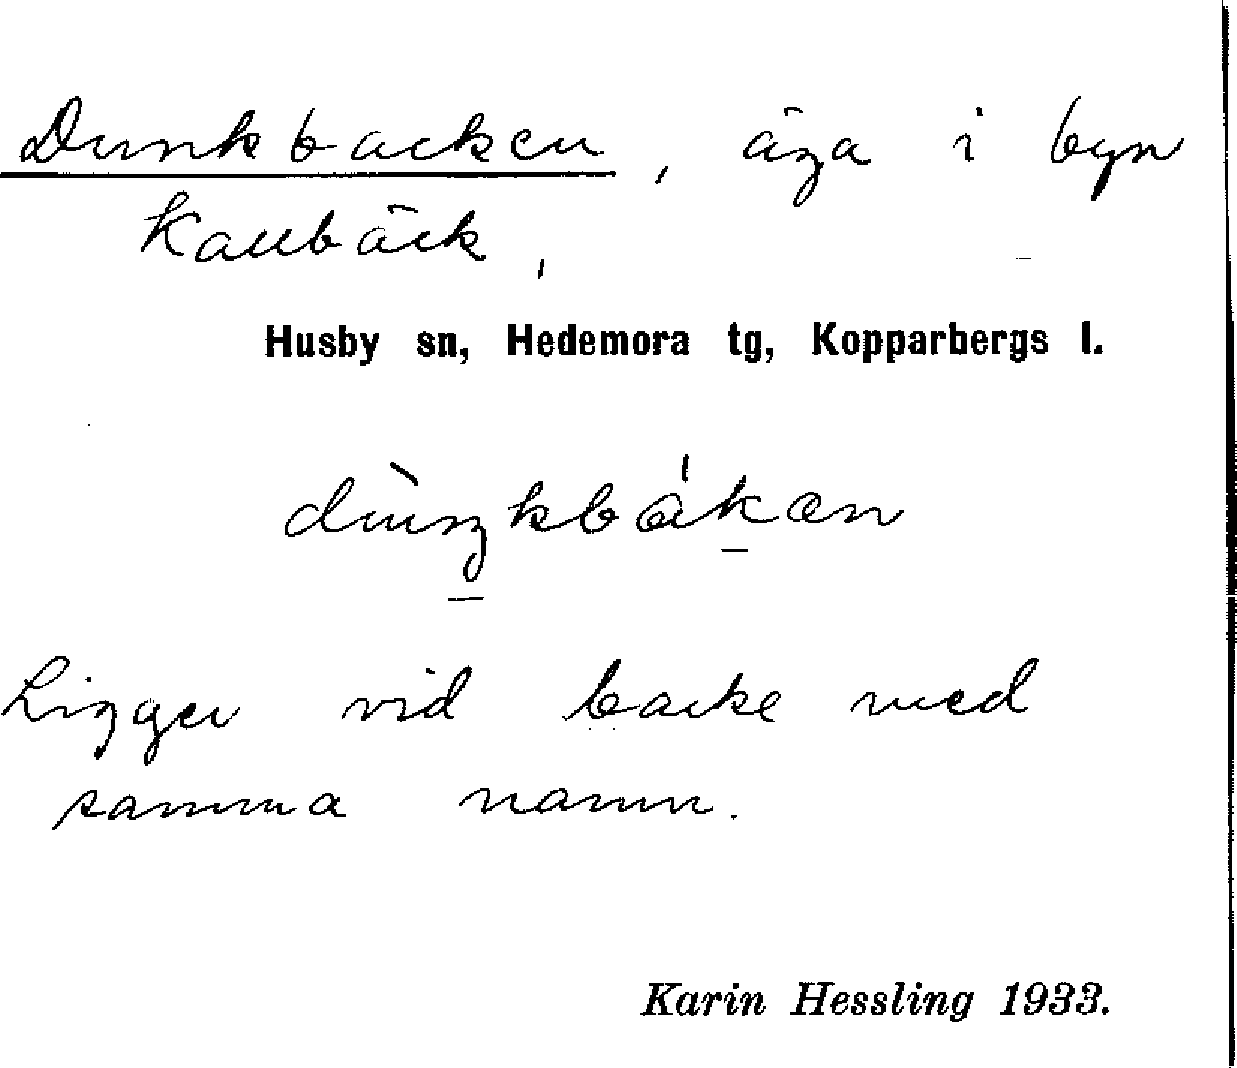 Dunkbacken, äga i byn
Kallbäck,
Husby sn, Hedemora tg, Kopparbergs l.
dùŋkbákan
Ligger vid backe med
samma namn.
Karin Hessling 1933.